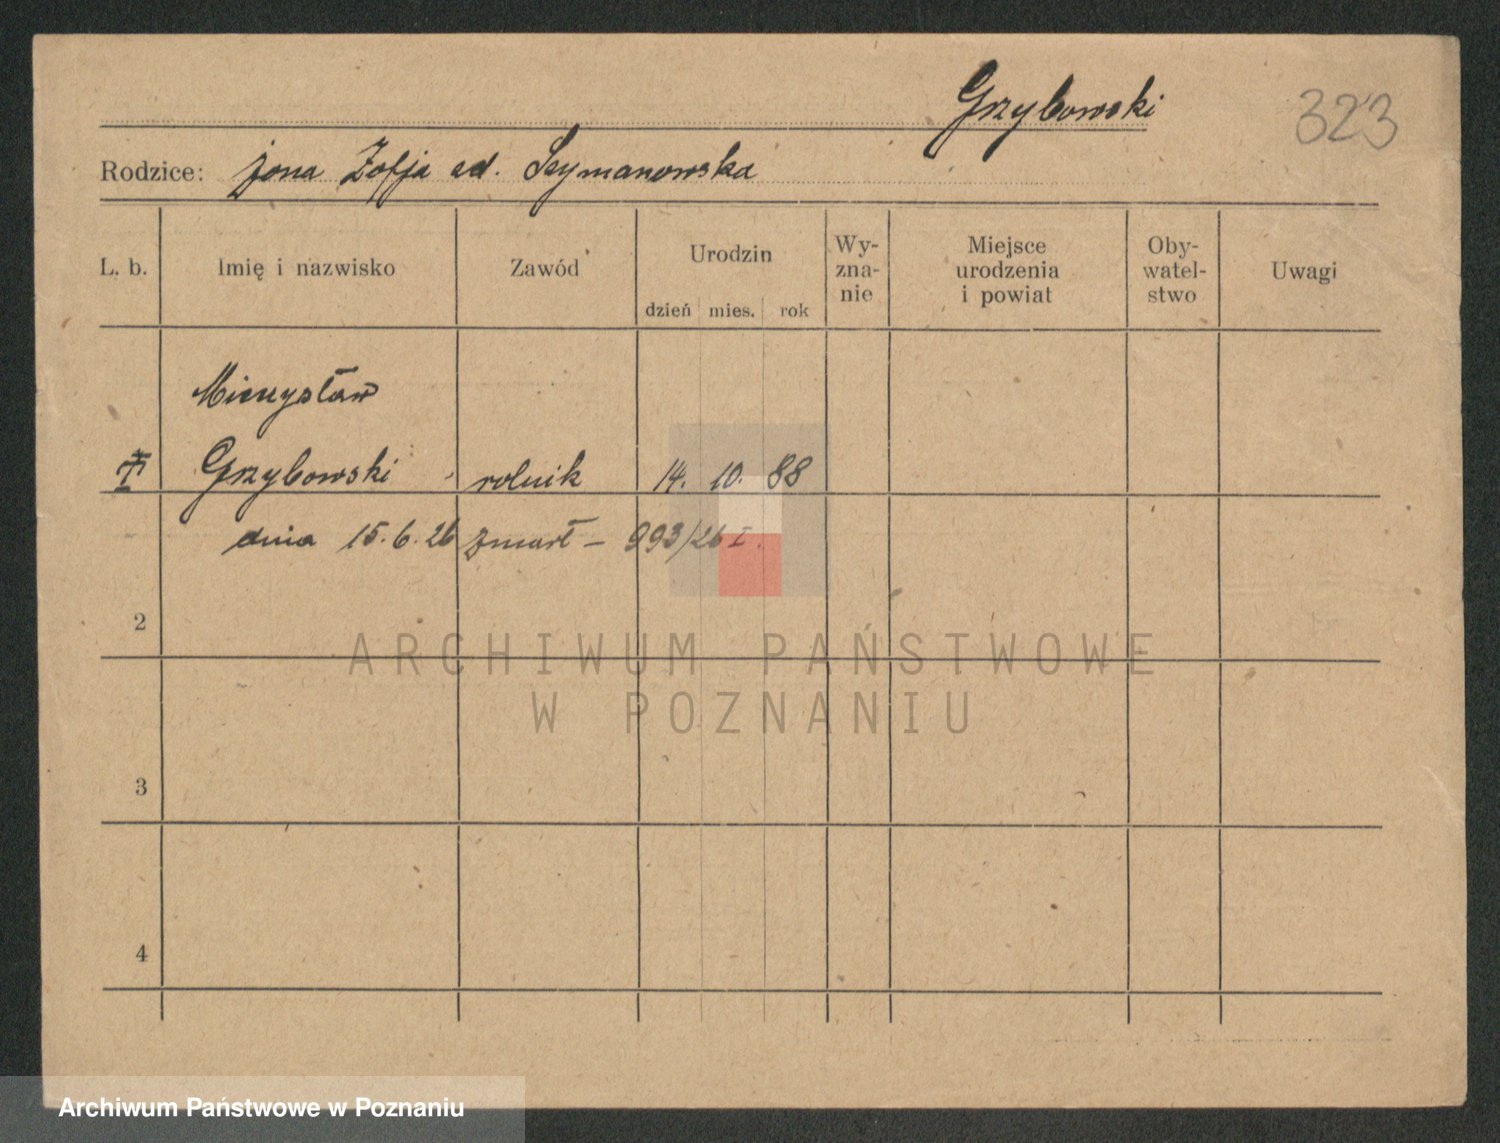 Grzybowski
323
Rodzice: żona Zofja ed. Szymanowska
L. b.
Imię i nazwisko
Zawód
Urodzin
dzień mies. rok
Wy-
zna-
nie
Miejsce
urodzenia
i powiat
Oby-
watel-
stwo
Uwagi
Mieczysław
Grzybowski rolnik 14. 10. 88
dnia 15.6.26 zmarł – 993/26 I.
2
ARCHIWUM PAŃSTWOWE
W POZNANIU
3
4
Archiwum Państwowe w Poznaniu